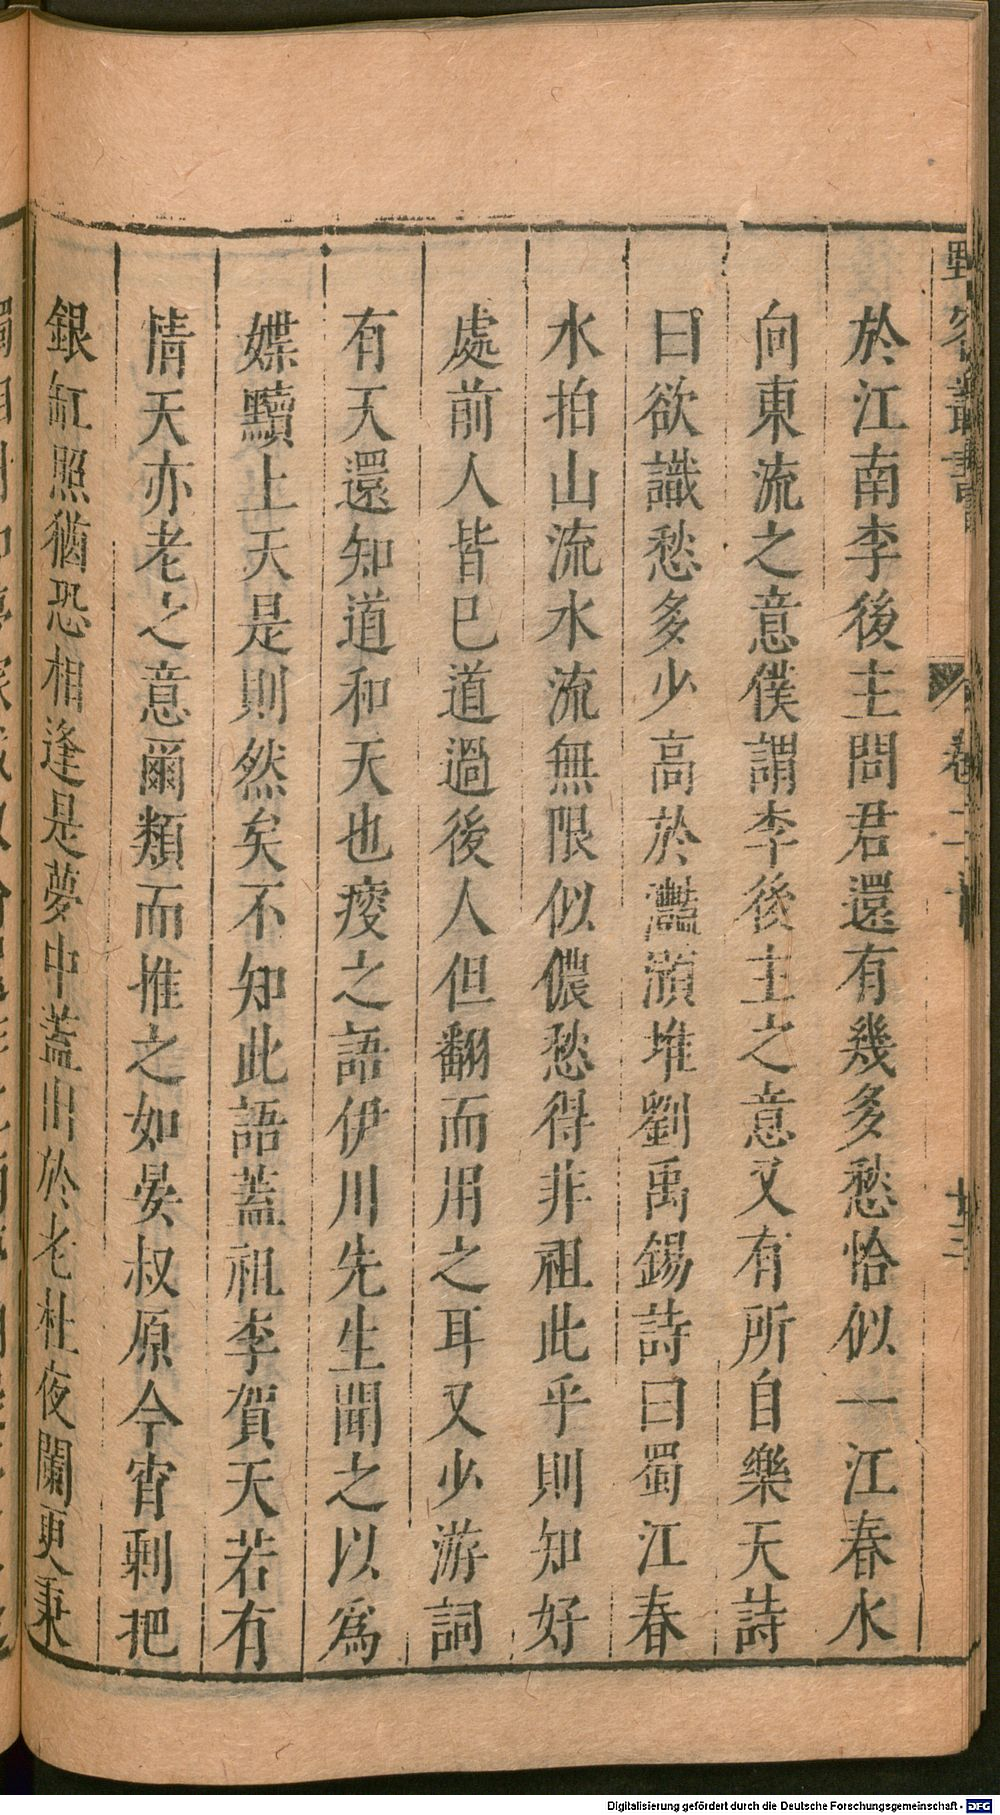 野客叢書 卷二十 廿三
於江南李後主問君還有幾多愁恰似一江春水
向東流之意僕謂李後主之意又有所自樂天詩
曰欲識愁多少高於灩澦堆劉禹錫詩曰蜀江春
水拍山流水流無限似儂愁得非祖此乎則知好
處前人皆已道過後人但翻而用之耳又少游詞
有天還知道和天也瘦之語伊川先生聞之以爲
媟黷上天是則然矣不知此語蓋祖李賀天若有
情天亦老之意爾類而推之如晏叔原今宵剩把
銀缸照猶恐相逢是夢中蓋出於老杜夜闌更秉
Digitalisierung gefördert durch die Deutsche Forschungsgemeinschaft - DFG